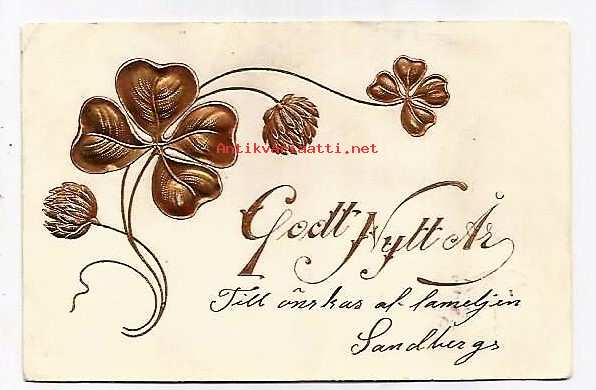 Antikvariaatti.net
Godt Nytt År
Till önskas af fameljen
Sandbergs